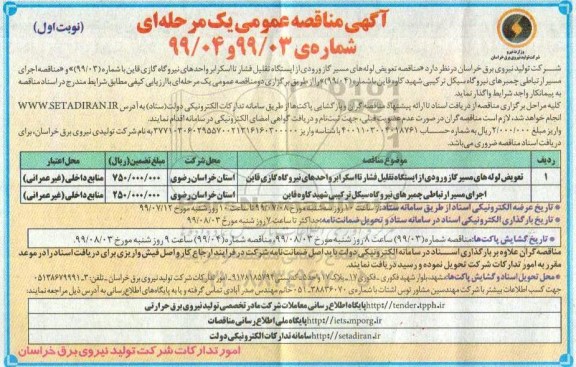 آگهی مناقصه عمومی یک مرحله‌ای
شماره‌ی ۹۹/۰۳ و ۹۹/۰۴
(نوبت اول)
وزارت نیرو
شرکت تولید نیروی برق خراسان
شرکت تولید نیروی برق خراسان در نظر دارد «مناقصه تعویض لوله های مسیر گاز ورودی از ایستگاه تقلیل فشار تا اسکرابر واحدهای نیروگاه گازی قاین با شماره (۹۹/۰۳)» و «مناقصه اجرای
مسیر ارتباطی چمبرهای نیروگاه سیکل ترکیبی شهید کاوه قاین باشماره (۹۹/۰۴)» را از طریق برگزاری دو مناقصه عمومی یک مرحله‌ای با ارزیابی کیفی مطابق شرایط مندرج در اسناد مناقصه
به پیمانکار واجد شرایط واگذار نماید.
کلیه مراحل برگزاری مناقصه از دریافت اسناد تا ارائه پیشنهاد مناقصه گران و بازگشایی پاکت‌ها از طریق سامانه تدارکات الکترونیکی دولت (ستاد) به آدرس WWW.SETADIRAN.IR
انجام خواهد شد، لازم است مناقصه گران در صورت عدم عضویت قبلی، جهت ثبت نام و دریافت گواهی امضای الکترونیکی در سامانه اقدام نمایند.
واریز مبلغ ۲/۰۰۰/۰۰۰ ریال به شماره حساب به نام شرکت تولیدی نیروی برق خراسان، برای
دریافت اسناد مناقصه ضروری می باشد.
ردیف موضوع مناقصه محل شرکت مبلغ تضمین (ریال) محل اعتبار
۱ تعویض لوله های مسیر گاز ورودی از ایستگاه تقلیل فشار تا اسکرابر واحدهای نیروگاه گازی قاین استان خراسان رضوی ۲۵۰/۰۰۰/۰۰۰ منابع داخلی (غیر عمرانی)
اجرای مسیر ارتباطی چمبرهای نیروگاه سیکل ترکیبی شهید کاوه قاین استان خراسان رضوی ۷۵۰/۰۰۰/۰۰۰ منابع داخلی (غیر عمرانی)
تاریخ عرضه الکترونیکی اسناد از طریق سامانه ستاد: روز شنبه مورخ ۹۹/۰۷/۱۲
تاریخ بارگذاری الکترونیکی اسناد در سامانه ستاد و تحویل ضمانت‌نامه: حداکثر تا ساعت ۷ روز شنبه مورخ ۹۹/۰۸/۰۳
تاریخ گشایش پاکت‌ها: مناقصه شماره (۹۹/۰۳) ساعت ۸ روز شنبه مورخ ۹۹/۰۸/۰۳ و مناقصه شماره (۹۹/۰۴) ساعت ۹ روز شنبه مورخ ۹۹/۰۸/۰۳.
مناقصه گران علاوه بر بارگذاری اسناد در سامانه الکترونیکی دولت، باید اصل ضمانت‌نامه شرکت در فرآیند ارجاع کار و اصل فیش واریزی برای دریافت اسناد را در موعد
مقرر به امور تدارکات شرکت تحویل نموده و رسید دریافت نمایند.
محل تحویل اسناد و گشایش پاکت‌ها: مشهد، بلوار شهید فکوری امور تدارکات شرکت تولید نیروی برق خراسان
جهت کسب اطلاعات بیشتر با شرکت مهندسین مشاور تماس گرفته و یا به پایگاه های اطلاع رسانی به آدرس ذیل مراجعه نمایند:
http://tender.tpph.ir پایگاه اطلاع رسانی معاملات شرکت مادر تخصصی تولید نیروی برق حرارتی
http://iets.mporg.ir پایگاه ملی اطلاع رسانی مناقصات
http://setadiran.ir سامانه تدارکات الکترونیکی دولت
امور تدارکات شرکت تولید نیروی برق خراسان